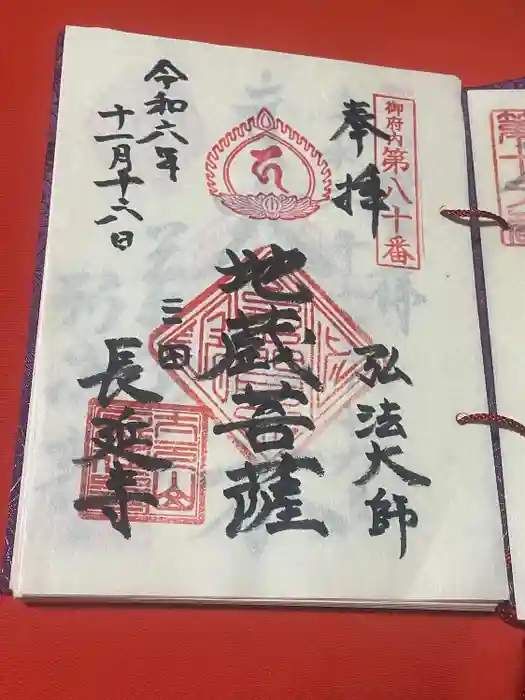 奉拝
御府内第八十番
弘法大師
地蔵菩薩
三田
長延寺
令和六年
十一月十六日